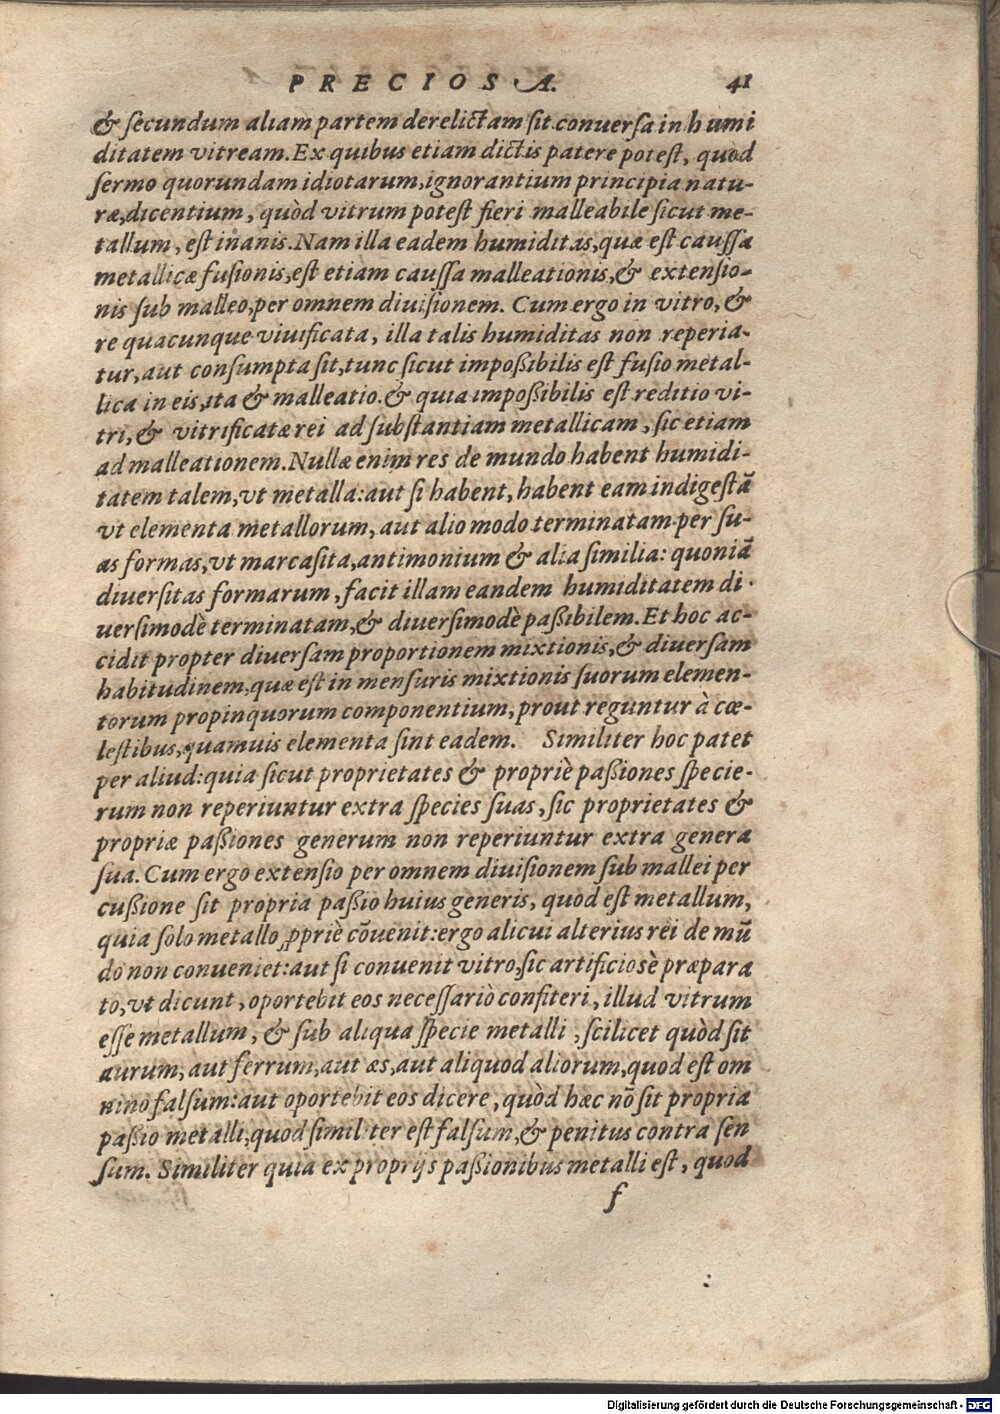 PRECIOSA. 41
& ſecundum aliam partem derelictam ſit conuerſa in humi
ditatem vitream. Ex quibus etiam dictis patere poteſt, quod
ſermo quorundam idiotarum, ignorantium principia natu-
ræ, dicentium, quòd vitrum poteſt fieri malleabile ſicut me-
tallum, eſt inanis. Nam illa eadem humiditas, quæ eſt cauſſa
metallicæ fuſionis, eſt etiam cauſſa malleationis, & extenſio-
nis ſub malleo, per omnem diuiſionem. Cum ergo in vitro, &
re quacunque viuificata, illa talis humiditas non reperia-
tur, aut conſumpta ſit, tunc ſicut impoßibilis eſt fuſio metal-
lica in eis, ita & malleatio. & quia impoßibilis eſt reditio vi-
tri, & vitrificatæ rei ad ſubſtantiam metallicam, ſic etiam
ad malleationem. Nullæ enim res de mundo habent humidi-
tatem talem, vt metalla: aut ſi habent, habent eam indigeſtã
vt elementa metallorum, aut alio modo terminatam per ſu-
as formas, vt marcaſita, antimonium & alia ſimilia: quoniã
diuerſitas formarum, facit illam eandem humiditatem di-
uerſimodè terminatam, & diuerſimodè paßibilem. Et hoc ac-
cidit propter diuerſam proportionem mixtionis, & diuerſam
habitudinem, quæ eſt in menſuris mixtionis ſuorum elemen-
torum propinquorum componentium, prout reguntur à cœ-
leſtibus, quamuis elementa ſint eadem. Similiter hoc patet
per aliud: quia ſicut proprietates & propriè paßiones ſpecie-
rum non reperiuntur extra ſpecies ſuas, ſic proprietates &
propriæ paßiones generum non reperiuntur extra genera
ſua. Cum ergo extenſio per omnem diuiſionem ſub mallei per
cußione ſit propria paßio huius generis, quod eſt metallum,
quia ſolo metallo ꝓpriè cõuenit: ergo alicui alterius rei de mũ
do non conueniet: aut ſi conuenit vitro, ſic artificiosè præpara
to, vt dicunt, oportebit eos neceſſariò confiteri, illud vitrum
eſſe metallum, & ſub aliqua ſpecie metalli, ſcilicet quòd ſit
aurum, aut ferrum, aut æs, aut aliquod aliorum, quod eſt om
nino falſum: aut oportebit eos dicere, quòd hæc nõ ſit propria
paßio metalli, quod ſimiliter eſt falſum, & penitus contra ſen
ſum. Similiter quia ex proprijs paßionibus metalli eſt, quod
f
Digitalisierung gefördert durch die Deutsche Forschungsgemeinschaft - DFG